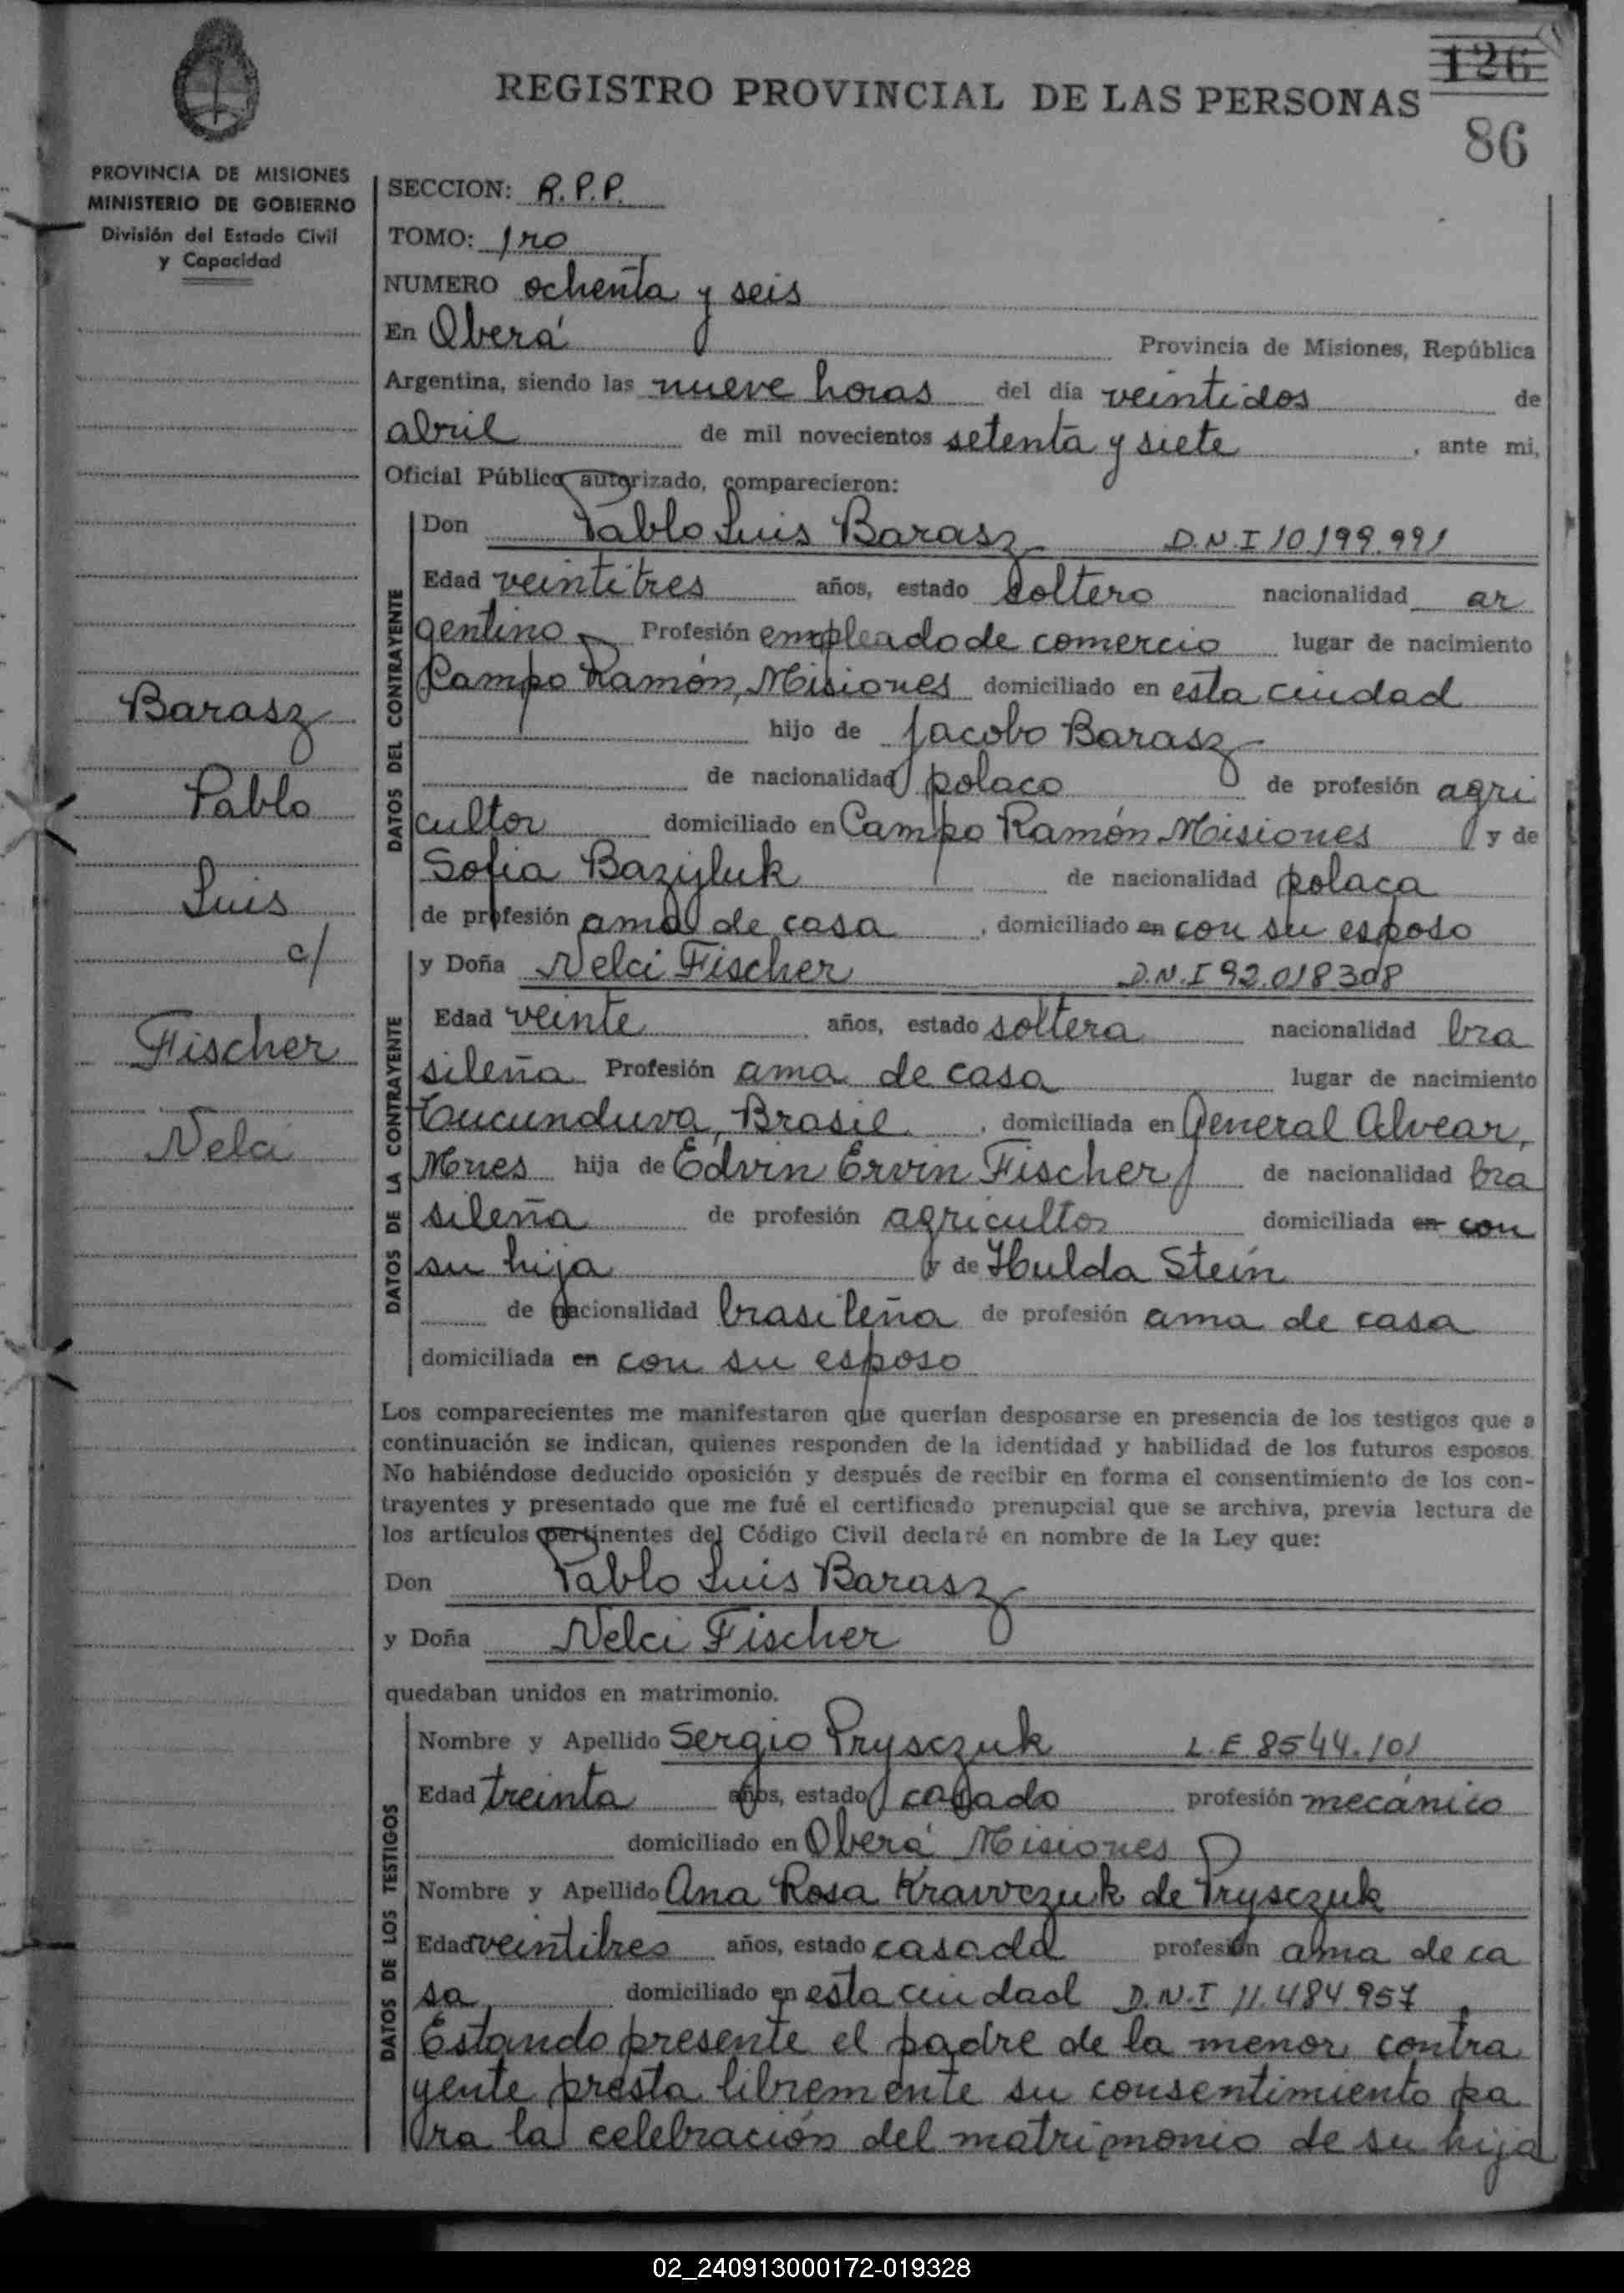 126
REGISTRO PROVINCIAL DE LAS PERSONAS
86
PROVINCIA DE MISIONES
MINISTERIO DE GOBIERNO
División del Estado Civil
y Capacidad
SECCION: R.P.P.
TOMO: 1ro
NUMERO ochenta y seis
En Oberá Provincia de Misiones, República
Argentina, siendo las nueve horas del día veintidos de
abril de mil novecientos setenta y siete, ante mi,
Oficial Público autorizado, comparecieron:
DATOS DEL CONTRAYENTE
Don Pablo Luis Barasz D.N.I 10.199.991
Edad veintitres años, estado soltero nacionalidad ar
gentino Profesión empleado de comercio lugar de nacimiento
Campo Ramón, Misiones domiciliado en esta ciudad
hijo de Jacobo Barasz
de nacionalidad polaco de profesión agri
cultor domiciliado en Campo Ramón Misiones y de
Sofia Bazijluk de nacionalidad polaca
de profesión ama de casa, domiciliado en con su esposo
Barasz
Pablo
Luis
c/
Fischer
Nelci
DATOS DE LA CONTRAYENTE
y Doña Nelci Fischer D.N.I 92.018308
Edad veinte años, estado soltera nacionalidad bra
sileña Profesión ama de casa lugar de nacimiento
Tucunduva, Brasil, domiciliada en General Alvear,
Mnes hija de Edvin Ervin Fischer de nacionalidad bra
sileña de profesión agricultor domiciliada en con
su hija y de Hulda Stein
de nacionalidad brasileña de profesión ama de casa
domiciliada en con su esposo
Los comparecientes me manifestaron que querían desposarse en presencia de los testigos que a
continuación se indican, quienes responden de la identidad y habilidad de los futuros esposos.
No habiéndose deducido oposición y después de recibir en forma el consentimiento de los con-
trayentes y presentado que me fué el certificado prenupcial que se archiva, previa lectura de
los artículos pertinentes del Código Civil declaré en nombre de la Ley que:
Don Pablo Luis Barasz
y Doña Nelci Fischer
quedaban unidos en matrimonio.
DATOS DE LOS TESTIGOS
Nombre y Apellido Sergio Prysczuk L.E 8544.101
Edad treinta años, estado casado profesión mecánico
domiciliado en Oberá Misiones
Nombre y Apellido Ana Rosa Krawczuk de Prysczuk
Edad veintitres años, estado casada profesión ama de ca
sa, domiciliado en esta ciudad D.N.I 11.484.957,
Estando presente el padre de la menor contra
yente presta libremente su consentimiento pa
ra la celebración del matrimonio de su hija
02_240913000172-019328